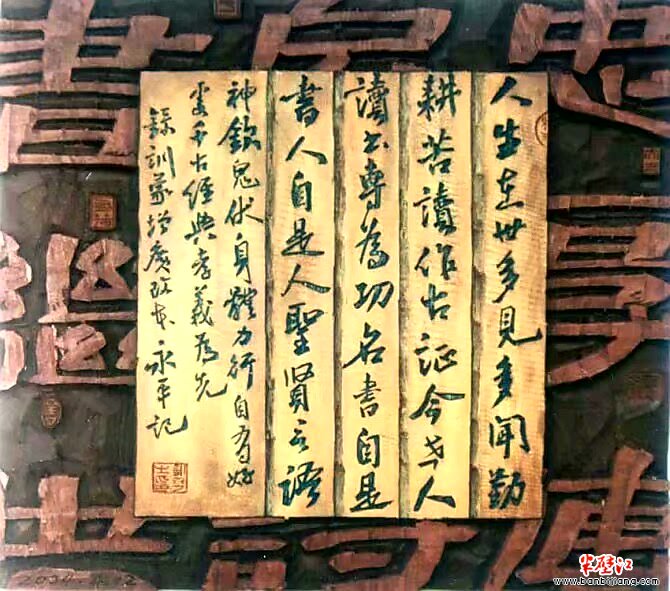 忠孝傳
家詩
書繼世
人生在世多見多聞勤
耕苦讀作古証今人
讀書專為功名書自是
書人自是人聖賢之語
神欽鬼伏身體力行自有好
處千古經典孝義為先
錄訓蒙增廣改本永平記
半壁江
www.banbijiang.com